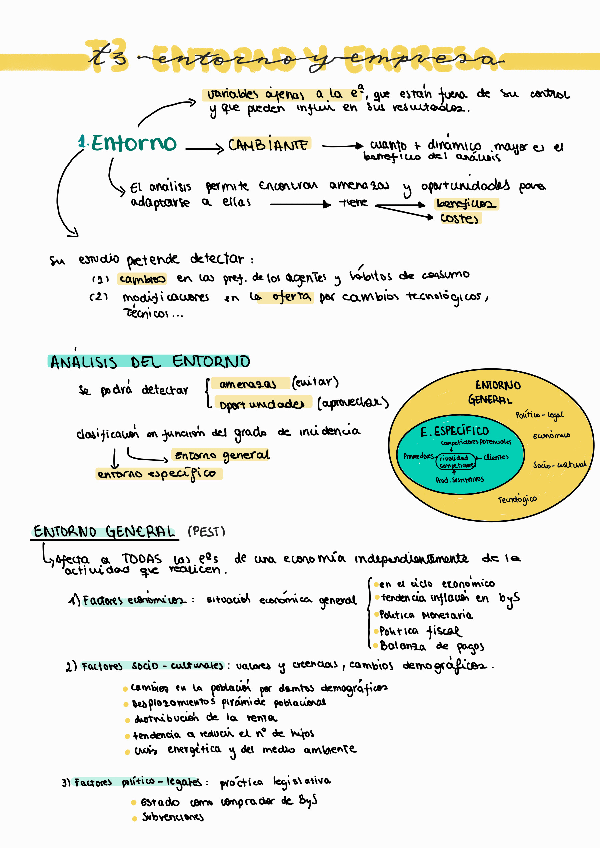 T3 entorno y empresa
variables ajenas a la eª, que están fuera de su control
y que pueden influir en sus resultados.
1. Entorno → CAMBIANTE → cuanto + dinámico mayor es el
beneficio del análisis
El análisis permite encontrar amenazas y oportunidades para
adaptarse a ellas → tiene → beneficios
costes
Su estudio pretende detectar:
(1) cambios en las pref. de los agentes y hábitos de consumo
(2) modificaciones en la oferta por cambios tecnológicos,
técnicos...
ANÁLISIS DEL ENTORNO
Se podrá detectar amenazas (evitar)
oportunidades (aprovechar)
clasificación en función del grado de incidencia
entorno general
entorno específico
ENTORNO
GENERAL
Político-legal
Económico
Socio-cultural
Tecnológico
E. ESPECÍFICO
competidores potenciales
Proveedores
rivalidad
competidores
clientes
Prod. Sustitutivos
ENTORNO GENERAL (PEST)
Afecta a TODAS las eªs de una economía independientemente de la
actividad que realicen.
1) Factores económicos: situación económica general
• en el ciclo económico
• tendencia inflación en bys
• Política Monetaria
• Política fiscal
• Balanza de pagos
2) Factores socio-culturales: valores y creencias, cambios demográficos.
• Cambios en la población por demográficos
• Desplazamientos pirámide poblacional
• distribución de la renta
• tendencia a reducir el nº de hijos
• Crisis energética y del medio ambiente
3) Factores político-legales: práctica legislativa
• Estado como comprador de Bys
• Subvenciones